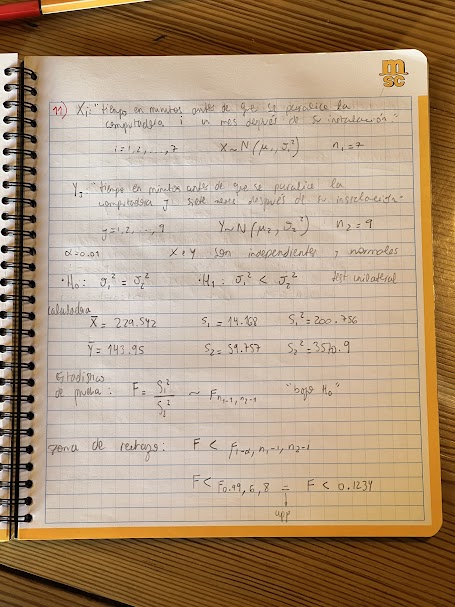 m
sc
11) Xi: "tiempo en minutos antes de que se paralice la
computadora i un mes después de su instalación"
i=1,2,...,7 X~N(μ₁,σ₁²) n₁=7
Yj: "tiempo en minutos antes de que se paralice la
computadora j siete meses después de su instalación"
j=1,2,...,9 Y~N(μ₂,σ₂²) n₂=9
α=0.01 X e Y son independientes y normales
·H₀: σ₁² = σ₂² ·H₁: σ₁² < σ₂² test unilateral
calculadora
X̄ = 229.542 S₁ = 14.168 S₁² = 200.756
Ȳ = 143.95 S₂ = 59.757 S₂² = 3570.9
Estadístico
de prueba: F = S₁²/S₂² ~ Fn₁-1,n₂-1 "bajo H₀"
zona de rechazo: F < F1-α,n₁-1,n₂-1
F < F0.99,6,8 = F < 0.1234
app